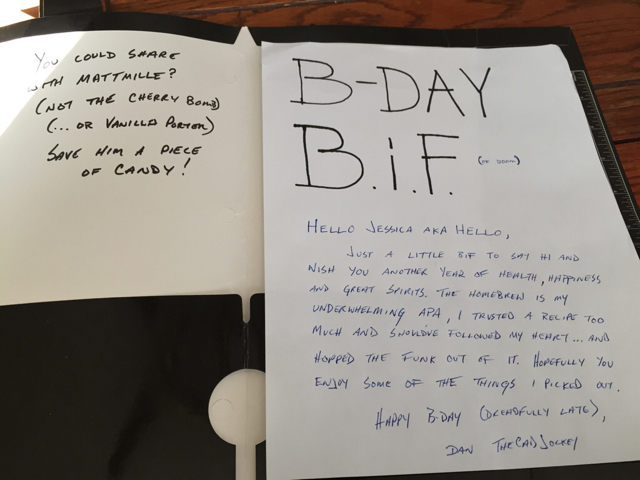 You could share
with Mattmille?
(not the cherry bomb)
(... or Vanilla Porter)
Save him a piece
of candy!
B-DAY
B.i.F.
(of doom)
Hello Jessica aka Hello,
Just a little BIF to say hi and
wish you another year of health, happiness
and great spirits. The homebrew is my
underwhelming APA, I trusted a recipe too
much and should've followed my heart... and
hopped the funk out of it. Hopefully you
enjoy some of the things I picked out.
Happy B-Day (dreadfully late),
Dan TheCadJockey